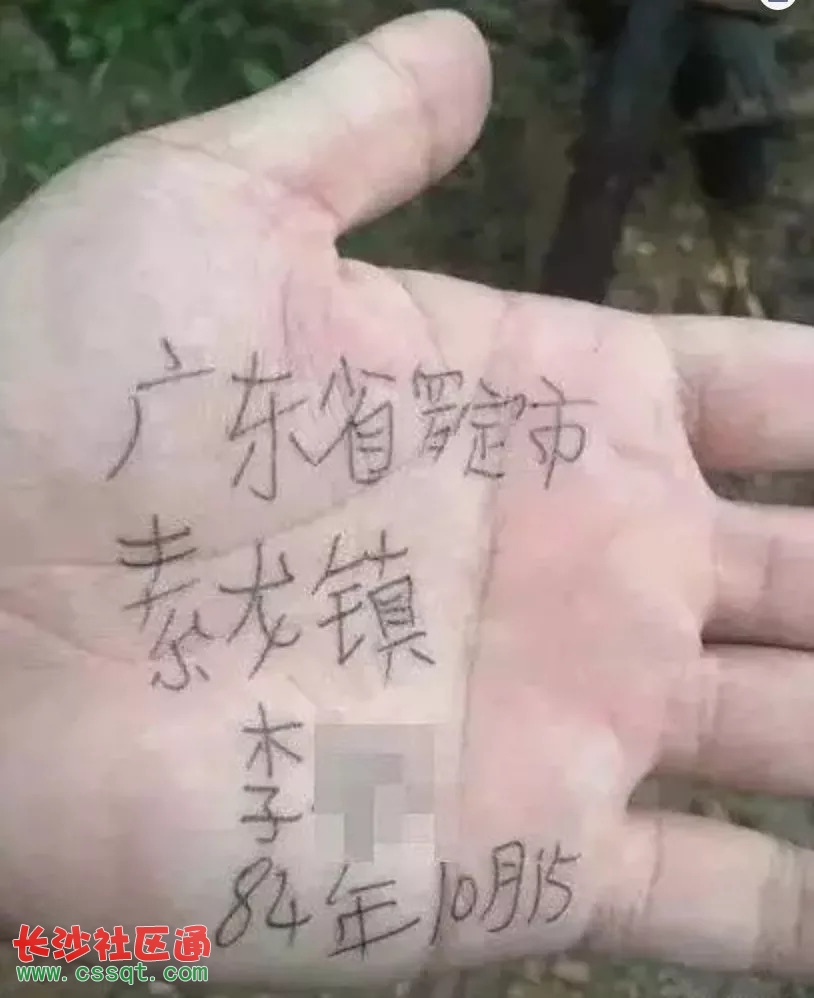 广东省罗定市
素龙镇
李
84年10月15
长沙社区通
www.cssqt.com